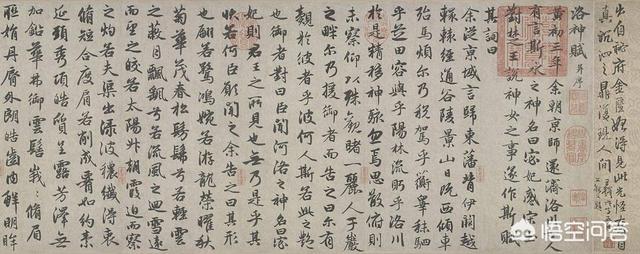 洛神賦 并序
黄初三年余朝京師還濟洛川古人
有言斯水之神名曰宓妃感宋玉
對楚王說神女之事遂作斯賦
其詞曰
余從京域言歸東藩背伊闕越
轘轅經通谷陵景山日既西傾車
殆馬煩尔乃稅駕乎蘅皋秣駟
乎芝田容與乎陽林流眄乎洛川
於是精移神駭忽焉思散俯則
未察仰以殊觀睹一麗人于巖
之畔尔乃援御者而告之曰尔有
覿於彼者乎彼何人斯若此之艷
也御者對曰臣聞河洛之神名曰宓
妃則君王之所見也無乃是乎其
狀若何臣願聞之余告之曰其形
也翩若驚鴻婉若游龍榮曜秋
菊華茂春松髣髴兮若輕雲
之蔽月飄飄兮若流風之迴雪遠
而望之皎若太陽升朝霞迫而察
之灼若夫渠出淥波穠纖得衷
脩短合度肩若削成腰如約素
延頸秀項皓質呈露芳澤無
加鉛華弗御雲髻峩峩脩眉
聯娟丹脣外朗皓齒内鮮明眸
悟空问答